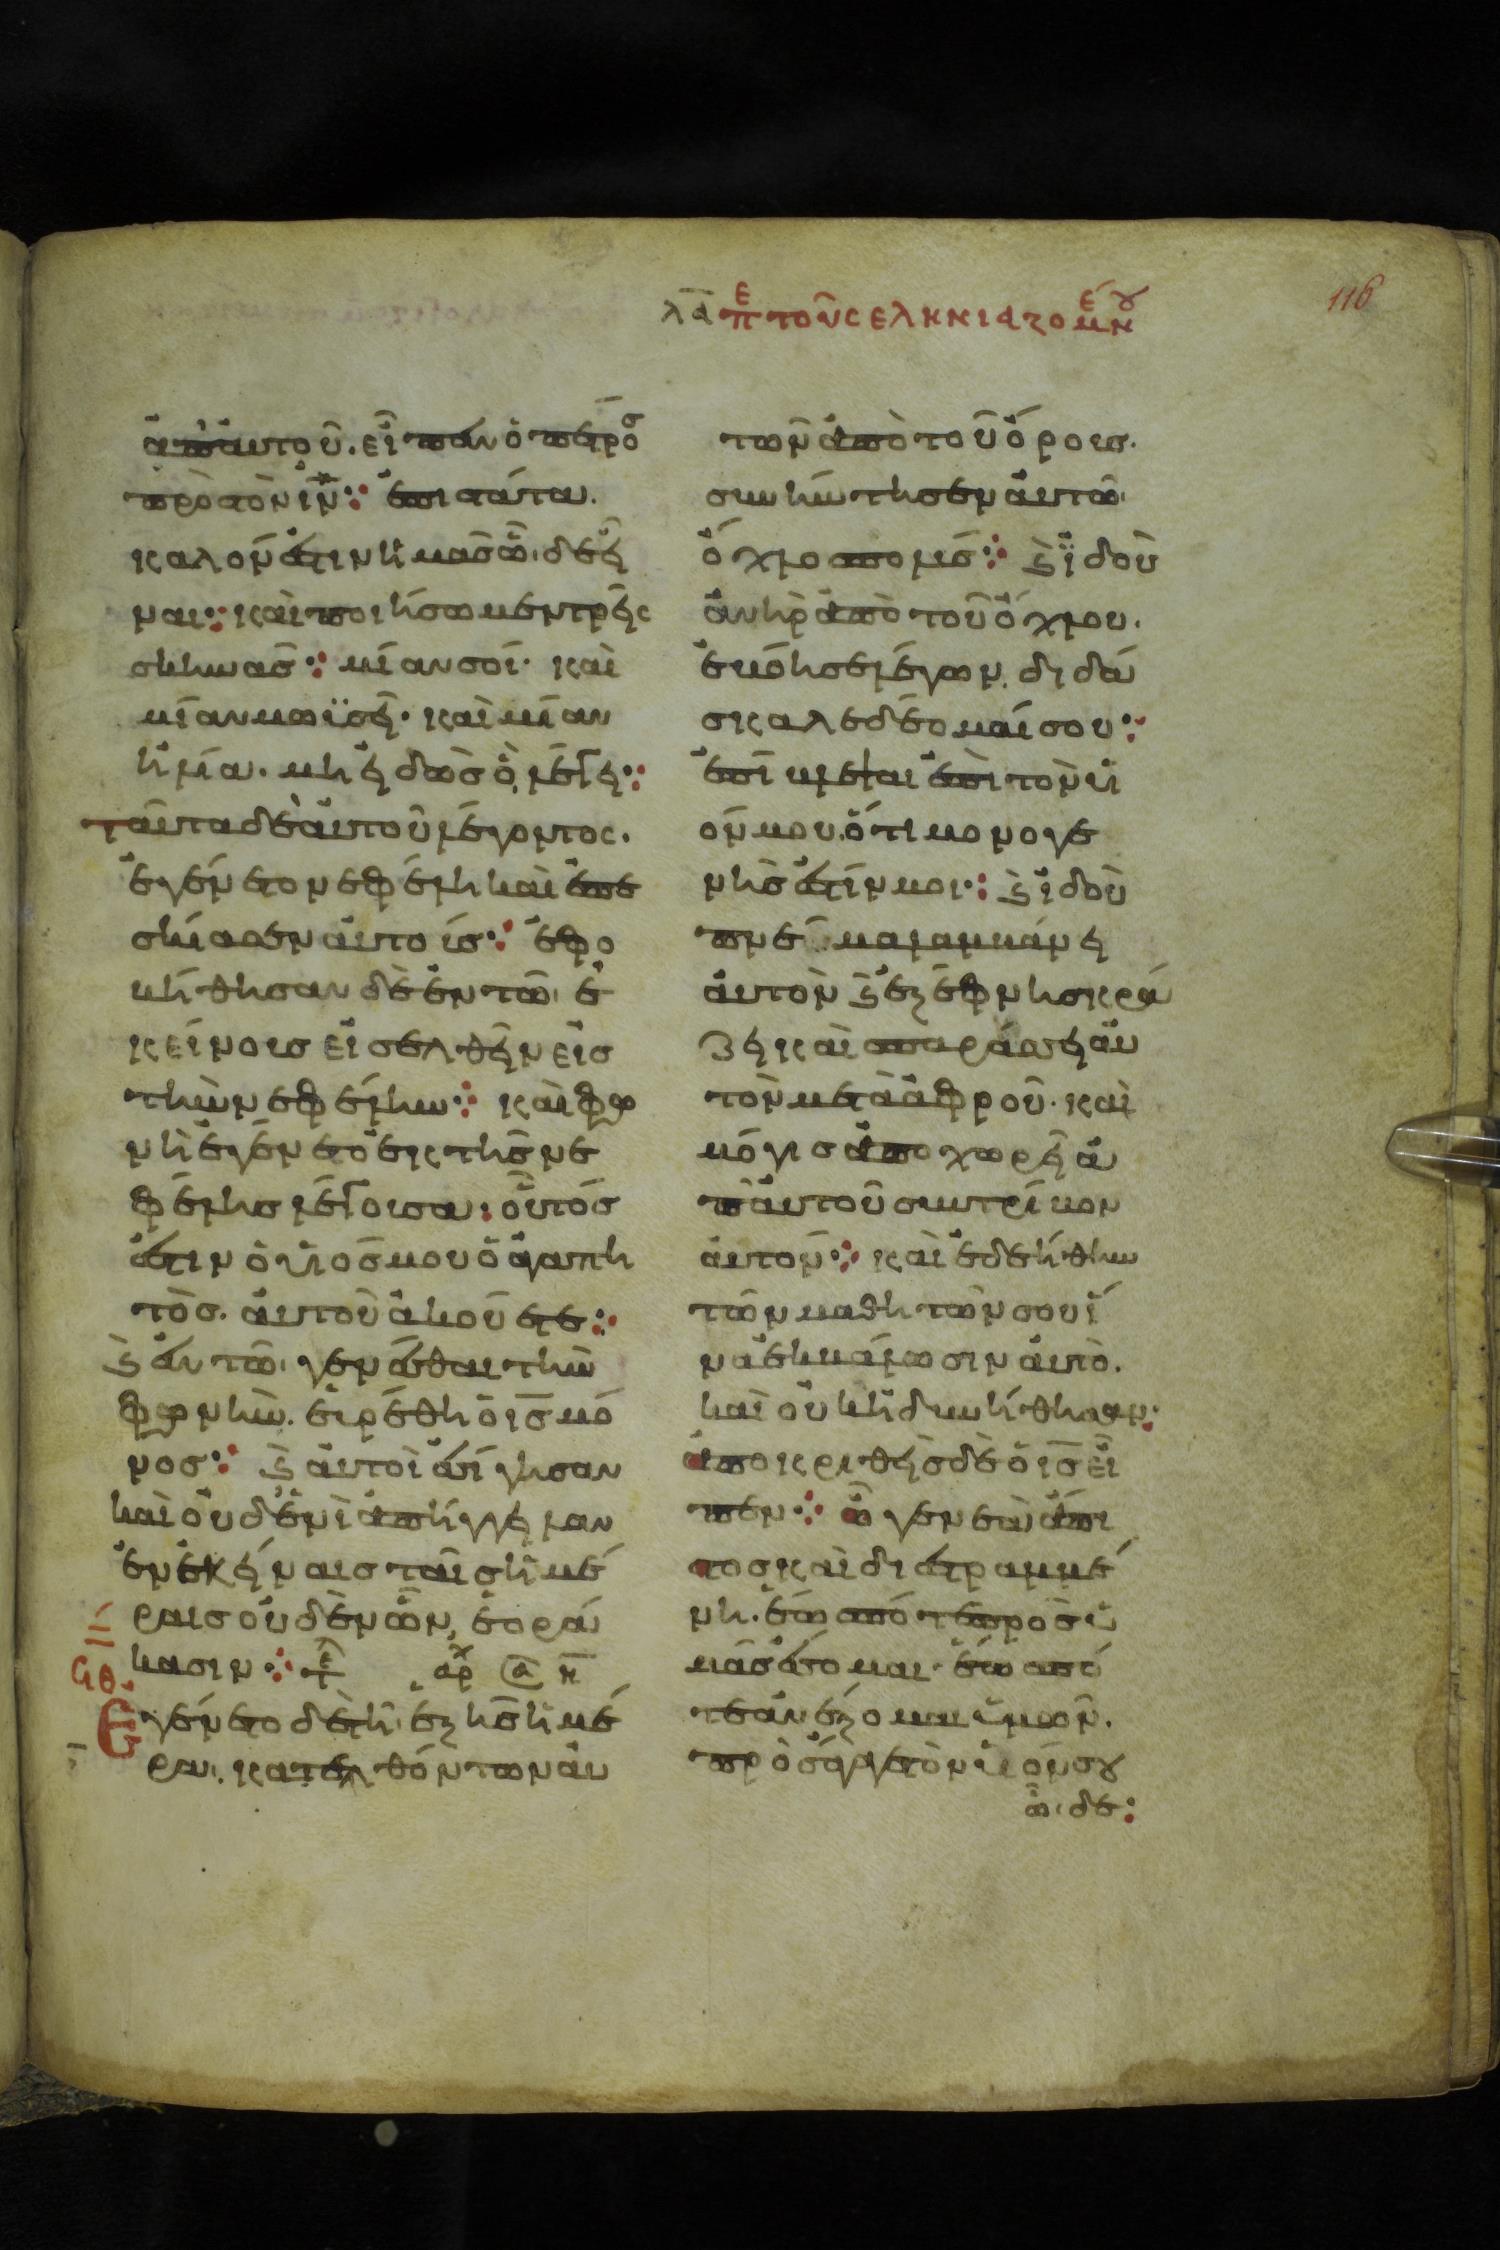 λα περι του σεληνιαζομενου
116
ἀπ' αὐτοῦ. εἶπεν ὁ πέτρος
πρὸς τὸν ιν· ἐπιστάτα.
καλόν ἐστιν ἡμᾶς ὧδε εἶ
ναι· καὶ ποιήσωμεν τρεῖς
σκηνάς· μίαν σοί· καὶ
μίαν μωϋσεῖ· καὶ μίαν
ἡλία. μὴ εἰδὼς ὃ λέγει·
ταῦτα δὲ αὐτοῦ λέγοντος.
ἐγένετο νεφέλη καὶ ἐπε
σκίασεν αὐτούς· ἐφο
βήθησαν δὲ ἐν τῶ ἐ
κείνους εἰσελθεῖν εἰς
τὴν νεφέλην· καὶ φω
νὴ ἐγένετο ἐκ τῆς νε
φέλης λέγουσα· οὗτός
ἐστιν ὁ υἱός μου ὁ ἀγαπη
τὸς. αὐτοῦ ἀκούετε·
ϗ ἐν τῶ γενέσθαι τὴν
φωνὴν. εὑρέθη ὁ ις μό
νος· ϗ αὐτοὶ ἐσίγησαν
καὶ οὐδενὶ ἀπήγγειλαν
ἐν ἐκείναις ταῖς ἡμέ
ραις οὐδὲν ὧν ἑορά
κασιν·
ϟθ
Ἐγένετο δὲ τῆ ἑξῆς ἡμέ
ρα. κατελθόντων αὐ
τῶν ἀπὸ τοῦ ὄρους.
συνήντησεν αὐτῶ
ὄχλος πολύς· ϗ ἰδοὺ
ἀνὴρ ἀπὸ τοῦ ὄχλου.
ἐβόησε λέγων. διδά
σκαλε δέομαί σου·
ἐπίβλεψαι ἐπὶ τὸν υἱ
όν μου. ὅτι μονογε
νὴς ἐστίν μοι· ϗ ἰδοὺ
πνα λαμβάνει
αὐτὸν ϗ ἐξέφνης κρά
ζει καὶ σπαράσσει αὐ
τὸν μετὰ ἀφροῦ. καὶ
μόγις ἀποχωρεῖ ἀ
π' αὐτοῦ συντρίβον
αὐτόν· καὶ ἐδεήθην
τῶν μαθητῶν σου ἵ
να ἐκβάλωσιν αὐτὸ.
καὶ οὐκ ἠδυνήθησαν·
ἀποκριθεὶς δὲ ὁ ις εἶ
πεν· ὦ γενεὰ ἄπι
στος καὶ διεστραμμέ
νη. ἕως πότε πρὸς ὑ
μᾶς ἔσομαι· ἕως πό
τε ἀνέξομαι ὑμῶν.
προσάγαγε τὸν υἱόν σου
ὧδε·